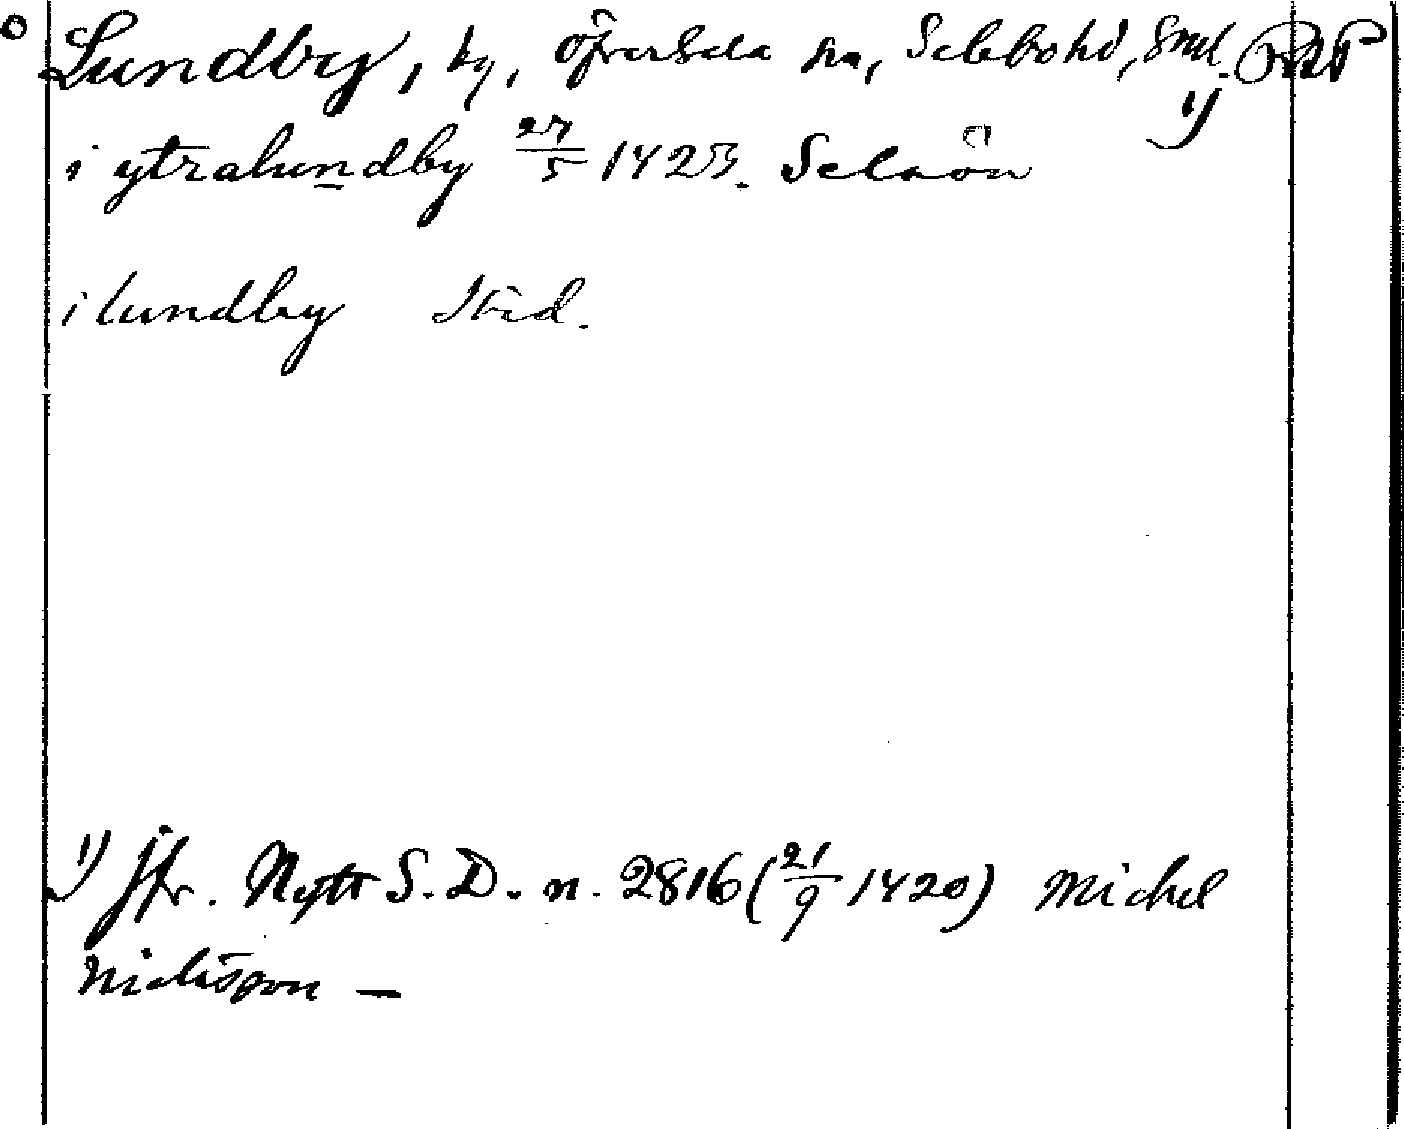 Lundby, by, Öfversela sn, Selebo hd, Sml. RAP
1)
i ytralundby 27/5 1423. Selaön
i lundby Ibid.
1) Jfr. Nytt S. D. n. 2816 (21/9 1420) Michel
niclisson —